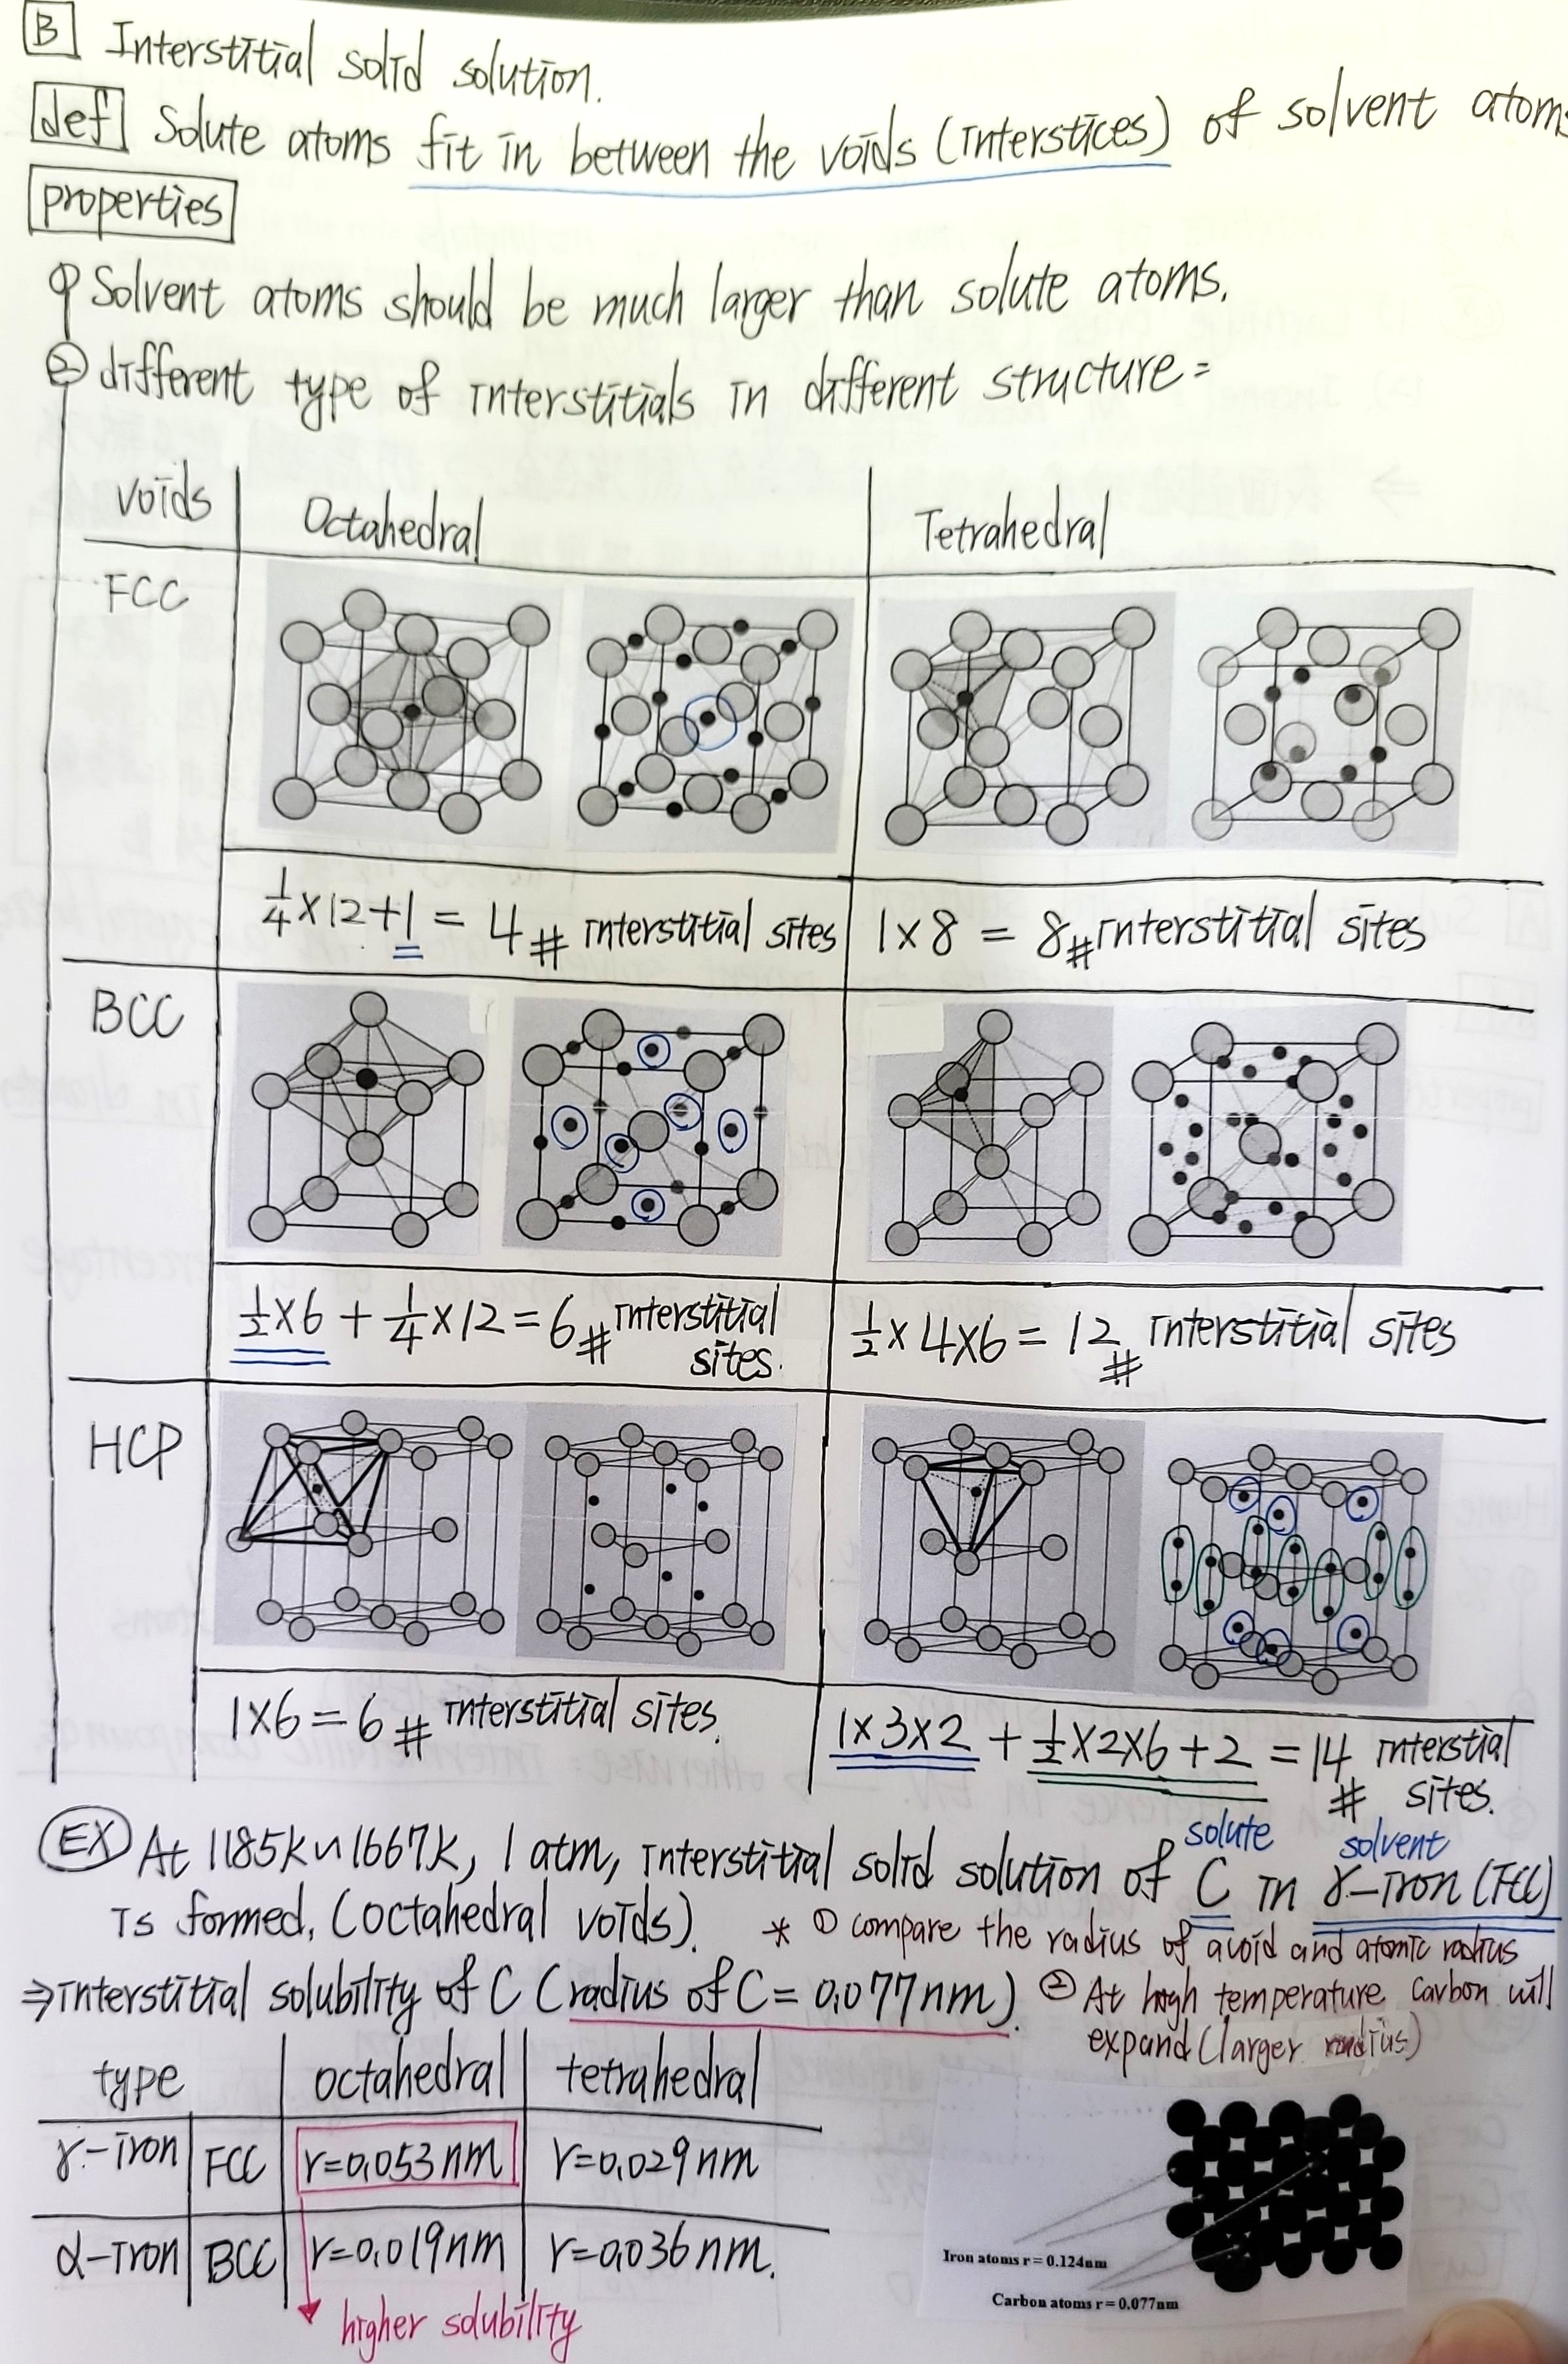 B Interstitial solid solution.
def Solute atoms fit in between the voids (interstices) of solvent atoms
properties
① Solvent atoms should be much larger than solute atoms.
② different type of interstitials in different structure:
voids Octahedral Tetrahedral
FCC
1/4×12+1 = 4# interstitial sites 1×8 = 8# interstitial sites
BCC
1/2×6 + 1/4×12 = 6# interstitial sites. 1/2×4×6 = 12# interstitial sites
HCP
1×6 = 6# interstitial sites. 1×3×2 + 1/2×2×6+2 = 14# interstial sites.
solute solvent
EX At 1185K~1667K, 1 atm, interstitial solid solution of C in γ-iron (FCC)
is formed. (octahedral voids). * ① compare the radius of a void and atomic radius
⇒ interstitial solubility of C (radius of C = 0.077nm). ② At high temperature carbon will
expand (larger radius)
type octahedral tetrahedral
γ-iron FCC r=0.053nm r=0.029nm
α-iron BCC r=0.019nm r=0.036nm.
higher solubility
Iron atoms r = 0.124nm
Carbon atoms r = 0.077nm